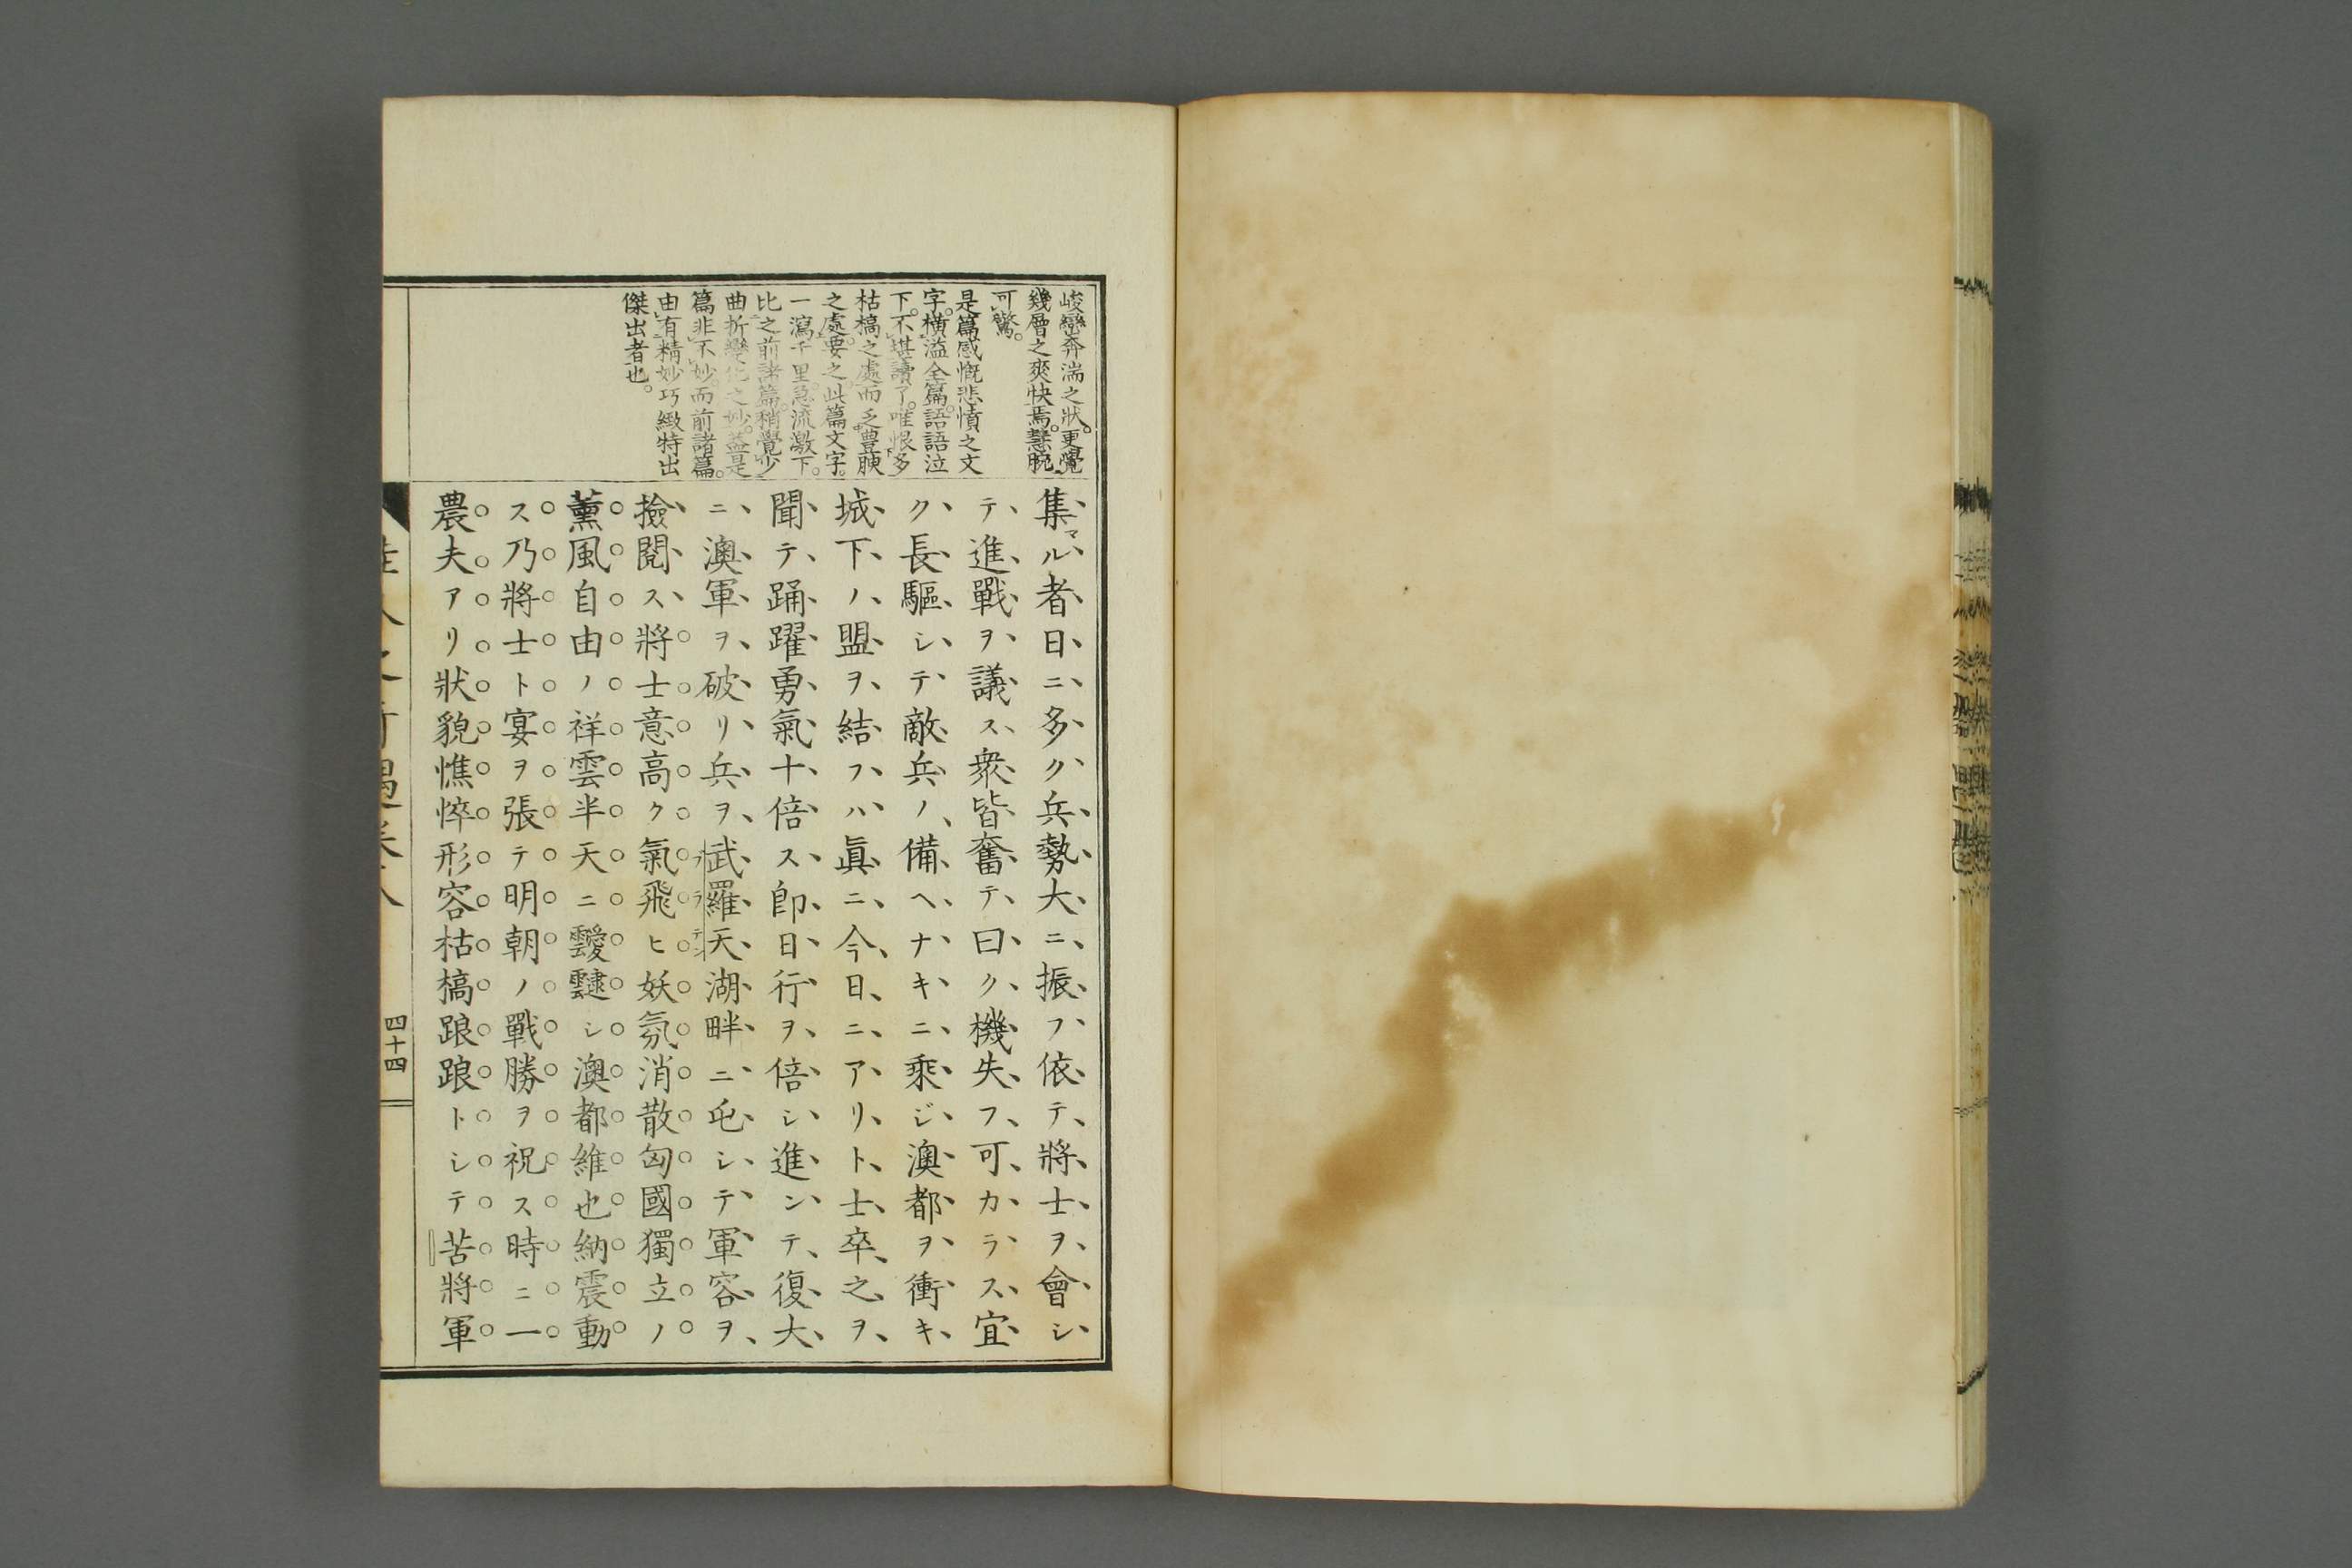 峻巒奔湍之狀更覺
幾層之爽快焉慧腕
可驚。
是篇感慨悲憤之文
字。橫溢全篇。語語泣
下。不堪讀了。唯恨多
枯槁之處而乏豊腴
之處。要之此篇文字。
一瀉千里急流激下。
比之前諸篇。稍覺少
曲折變化之妙。蓋是
篇非不妙。而前諸篇。
由有精妙巧緻特出
傑出者也。
集マル者日ニ多ク兵勢大ニ振フ依テ將士ヲ會シ
テ進戰ヲ議ス衆皆奮テ曰ク機失フ可カラス宜
ク長驅シテ敵兵ノ備ヘナキニ乘ジ澳都ヲ衝キ
城下ノ盟ヲ結フハ眞ニ今日ニアリト士卒之ヲ
聞テ踊躍勇氣十倍ス卽日行ヲ倍シ進ンテ復大
ニ澳軍ヲ破リ兵ヲ武羅天湖畔ニ屯シテ軍容ヲ
撿閱ス將士意高ク氣飛ヒ妖氛消散匈國獨立ノ
薰風自由ノ祥雲半天ニ靉靆シ澳都維也納震動
ス乃將士ト宴ヲ張テ明朝ノ戰勝ヲ祝ス時ニ一
農夫アリ狀貌憔悴形容枯槁踉踉トシテ苦將軍
佳人之奇遇卷八
四十四